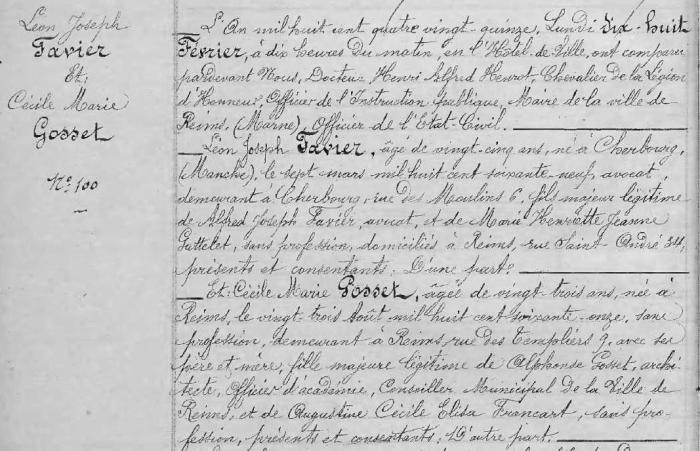 Léon Joseph
Favier
Et:
Cécile Marie
Gosset
N° 100
L'An mil huit cent quatre vingt-quinze, Lundi dix-huit
Février, à dix heures du matin, en l'Hôtel-de-Ville, ont comparu
pardevant Nous, Docteur Henri Alfred Henrot, Chevalier de la Légion
d'Honneur, Officier de l'Instruction publique, Maire de la ville de
Reims, (Marne), Officier de l'Etat-Civil.
Léon Joseph Favier, âgé de vingt-cinq ans, né à Cherbourg,
(Manche), le sept mars mil huit cent soixante-neuf, avocat,
demeurant à Cherbourg, rue des Moulins 6, fils majeur légitime
de Alfred Joseph Favier, avocat, et de Marie Henriette Jeanne
sans profession, domiciliés à Reims, rue Saint-André
présents et consentants: D'une part.
Et: Cécile Marie Gosset, âgée de vingt-trois ans, née à
Reims, le vingt trois Août mil huit cent soixante-onze, sans
profession, demeurant à Reims, rue des Templiers 9, avec ses
père et mère, fille majeure légitime de Alphonse Gosset, archi-
tecte, Officier d'académie, Conseiller Municipal de la Ville de
Reims, et de Augustine Cécile Elisa Francart, sans pro-
fession, présents et consentants; D'autre part.